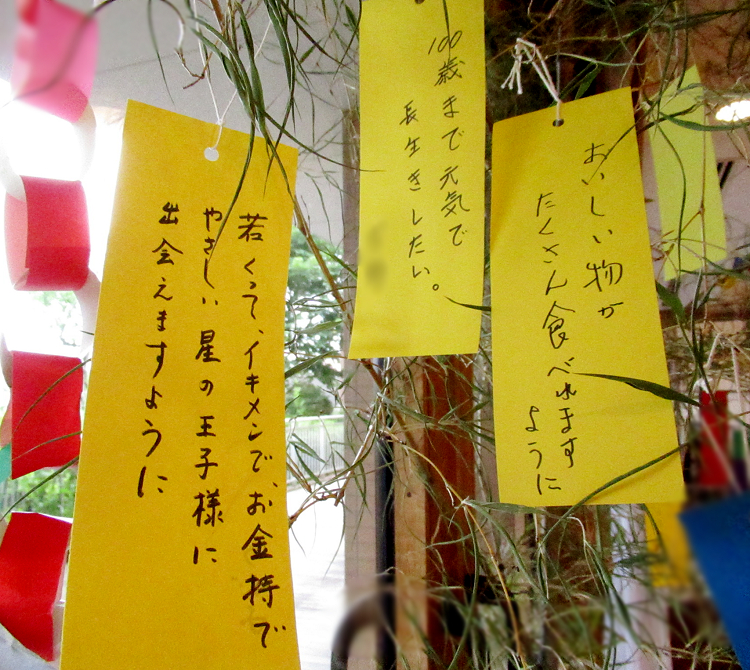 おいしい物が
たくさん食べれます
ように
100歳まで元気で
長生きしたい。
若くって、イキメンで、お金持で
やさしい星の王子様に
出会えますように